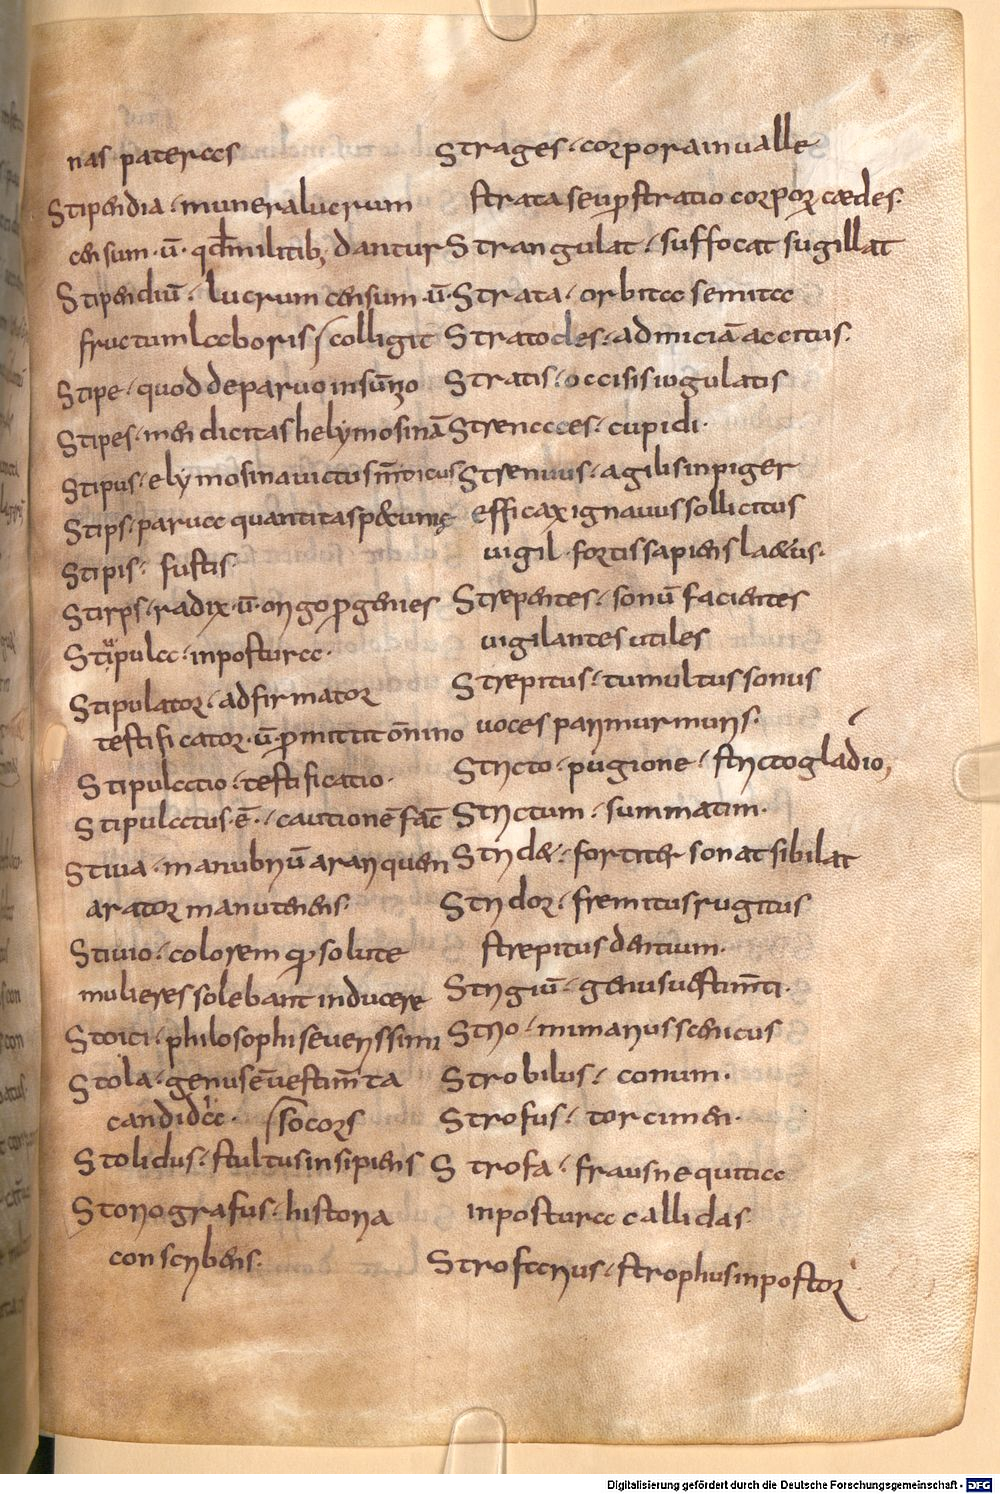 nas pateras
Stipendia · munera lucrum
censum · ū · qđ militib; dantur
Stipendiū · lucrum censum · ū ·
fructum laboris colligit
Stipe · quod de paruo insūmo
Stipes · mendicitas helymosinā
Stipus · elymosina uictus
Stips · parua quantitas pecunię
Stipis · fustis ·
Stirps · radix · ū · origo ꝓgenies
Stipula · inpostura ·
Stipulator · adfirmator
testificator · ū ꝓmittit om̄ino
Stipulatio · testificatio ·
Stipulatus · ē · cautionē fac̄
Stiua · manubriū aratri quem
arator manu tenens ·
Stiuio · colorem solute
mulieres solebant inducere
Stoici · philosophi seuerissimi
Stola · genus ē uestim̄ta
candida · socors
Stolidus · stultus insipiens
Storiografus · historia
conscribens ·
Strages · corpora in ualle
strata seu ꝓstratio corporꝝ cædes ·
Strangulat · suffocat sugillat
Strata · orbita semita
Stratocles · ad miciā accitus ·
Stratis · occisis iugulatis
Strenaces · cupidi ·
Strenuus · agilis inpiger
efficax ignauus sollicitus
uigil · fortis sapiens laetus ·
Strepentes · sonū facientes
uigilantes utiles
Strepitus · tumultus sonus
uoces pari murmuris ·
Stricto · pugione · stricto gladio,
Strictum · summatim ·
Stridet · fortiter sonat sibilat
Stridor · fremitus rugitus
strepitus dentium ·
Strigiū · genus uestim̄ti ·
Strio · mimarius scenicus
Strobilus · conum ·
Strofus · torcimen ·
Strofa · fraus nequitia
inpostura callidas
Strofarius · strophus inpostor
Digitalisierung gefördert durch die Deutsche Forschungsgemeinschaft - DFG